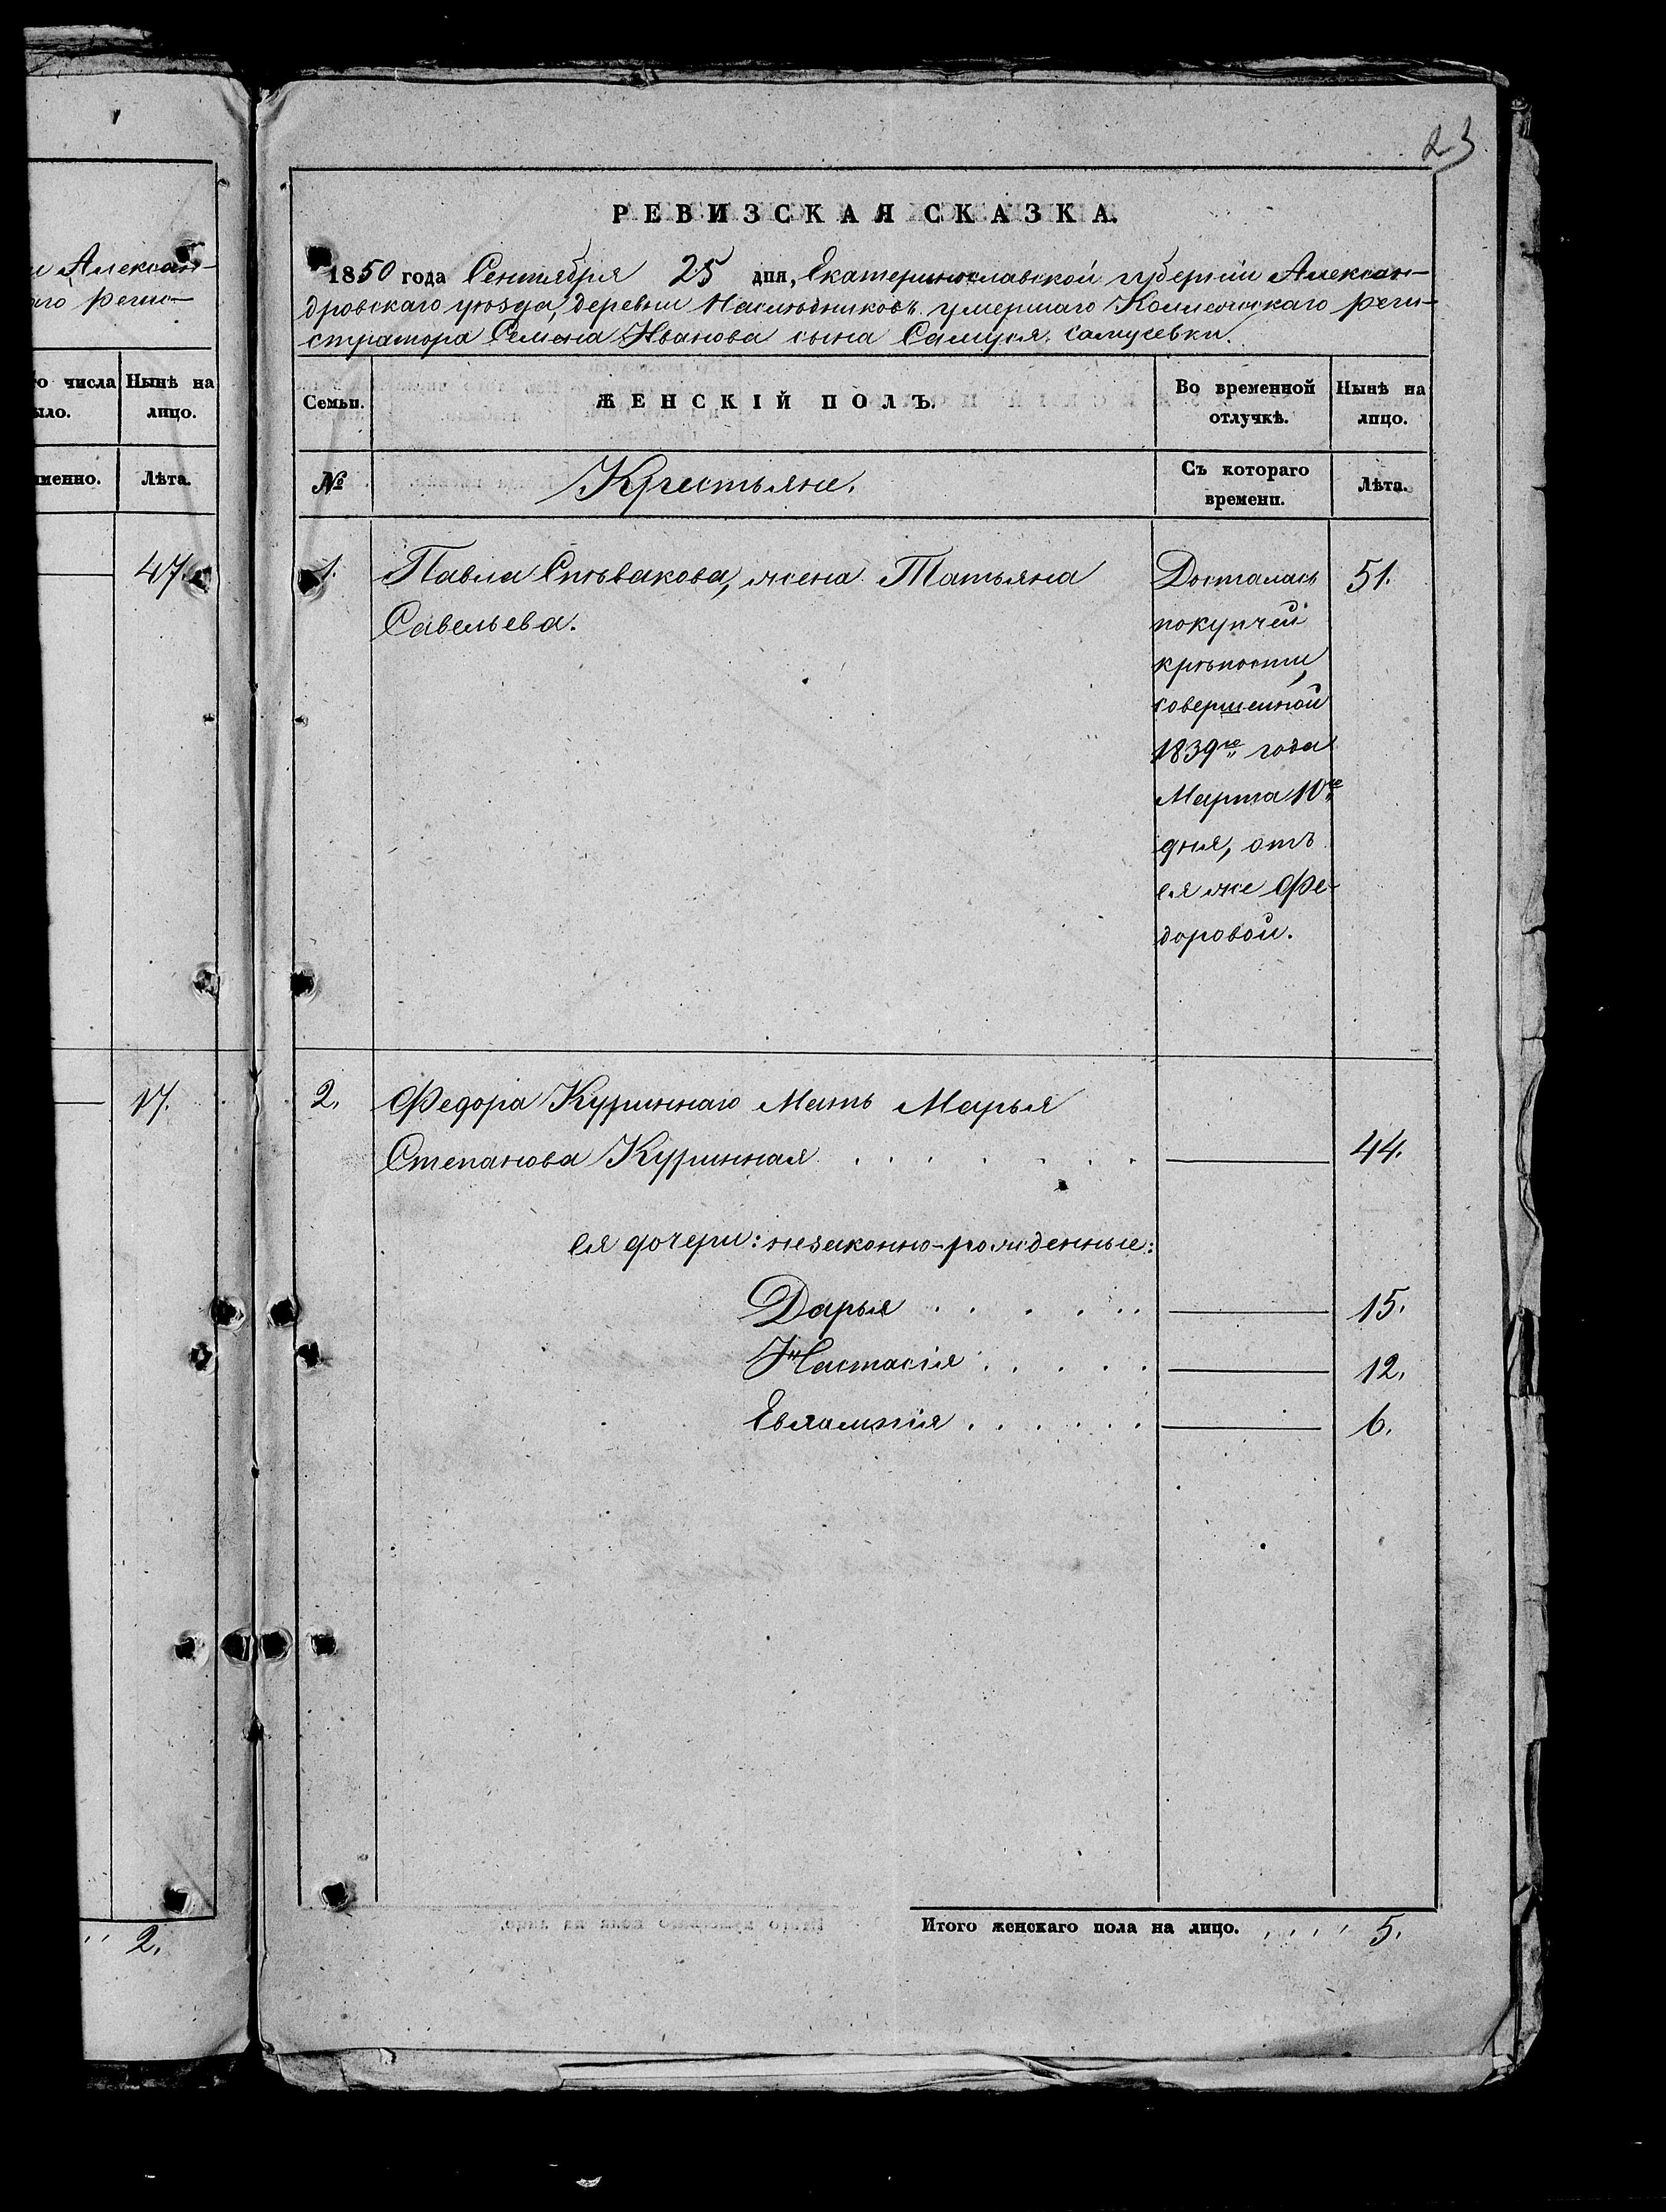 23
РЕВИЗСКАЯ СКАЗКА.
1850 года Сентября 25 дня, Екатеринославской губерніи Алексан-
дровскаго уѣзда, деревни Наслѣдниковъ умершаго Коллежскаго реги-
стратора Семена Иванова сына Самуся. Самусевки.
Семьи.
ЖЕНСКІЙ ПОЛЪ.
Во временной отлучкѣ.
Нынѣ на лицо.
№
Крестьяне.
Съ котораго времени.
Лѣта.
1. Павла Спѣвакова, жена Татьяна Досталась 51.
Савельева. покупчей
крѣпости,
совершенной
1839го года
Марта 10го
дня, отъ
ея же Фе-
доровой.
2. Федора Куриннаго Мать Марья
Степанова Куринная . . . . . . 44.
ея дочери: незаконно-рожденные:
Дарья . . . . . . 15.
Настасія . . . . . 12.
Евлампія . . . . . . 6.
Итого женскаго пола на лицо. . . . . 5.
и Алексан-
аго регис-
о числа
ыло.
Нынѣ на
лицо.
менно.
Лѣта.
47.
17.
2.